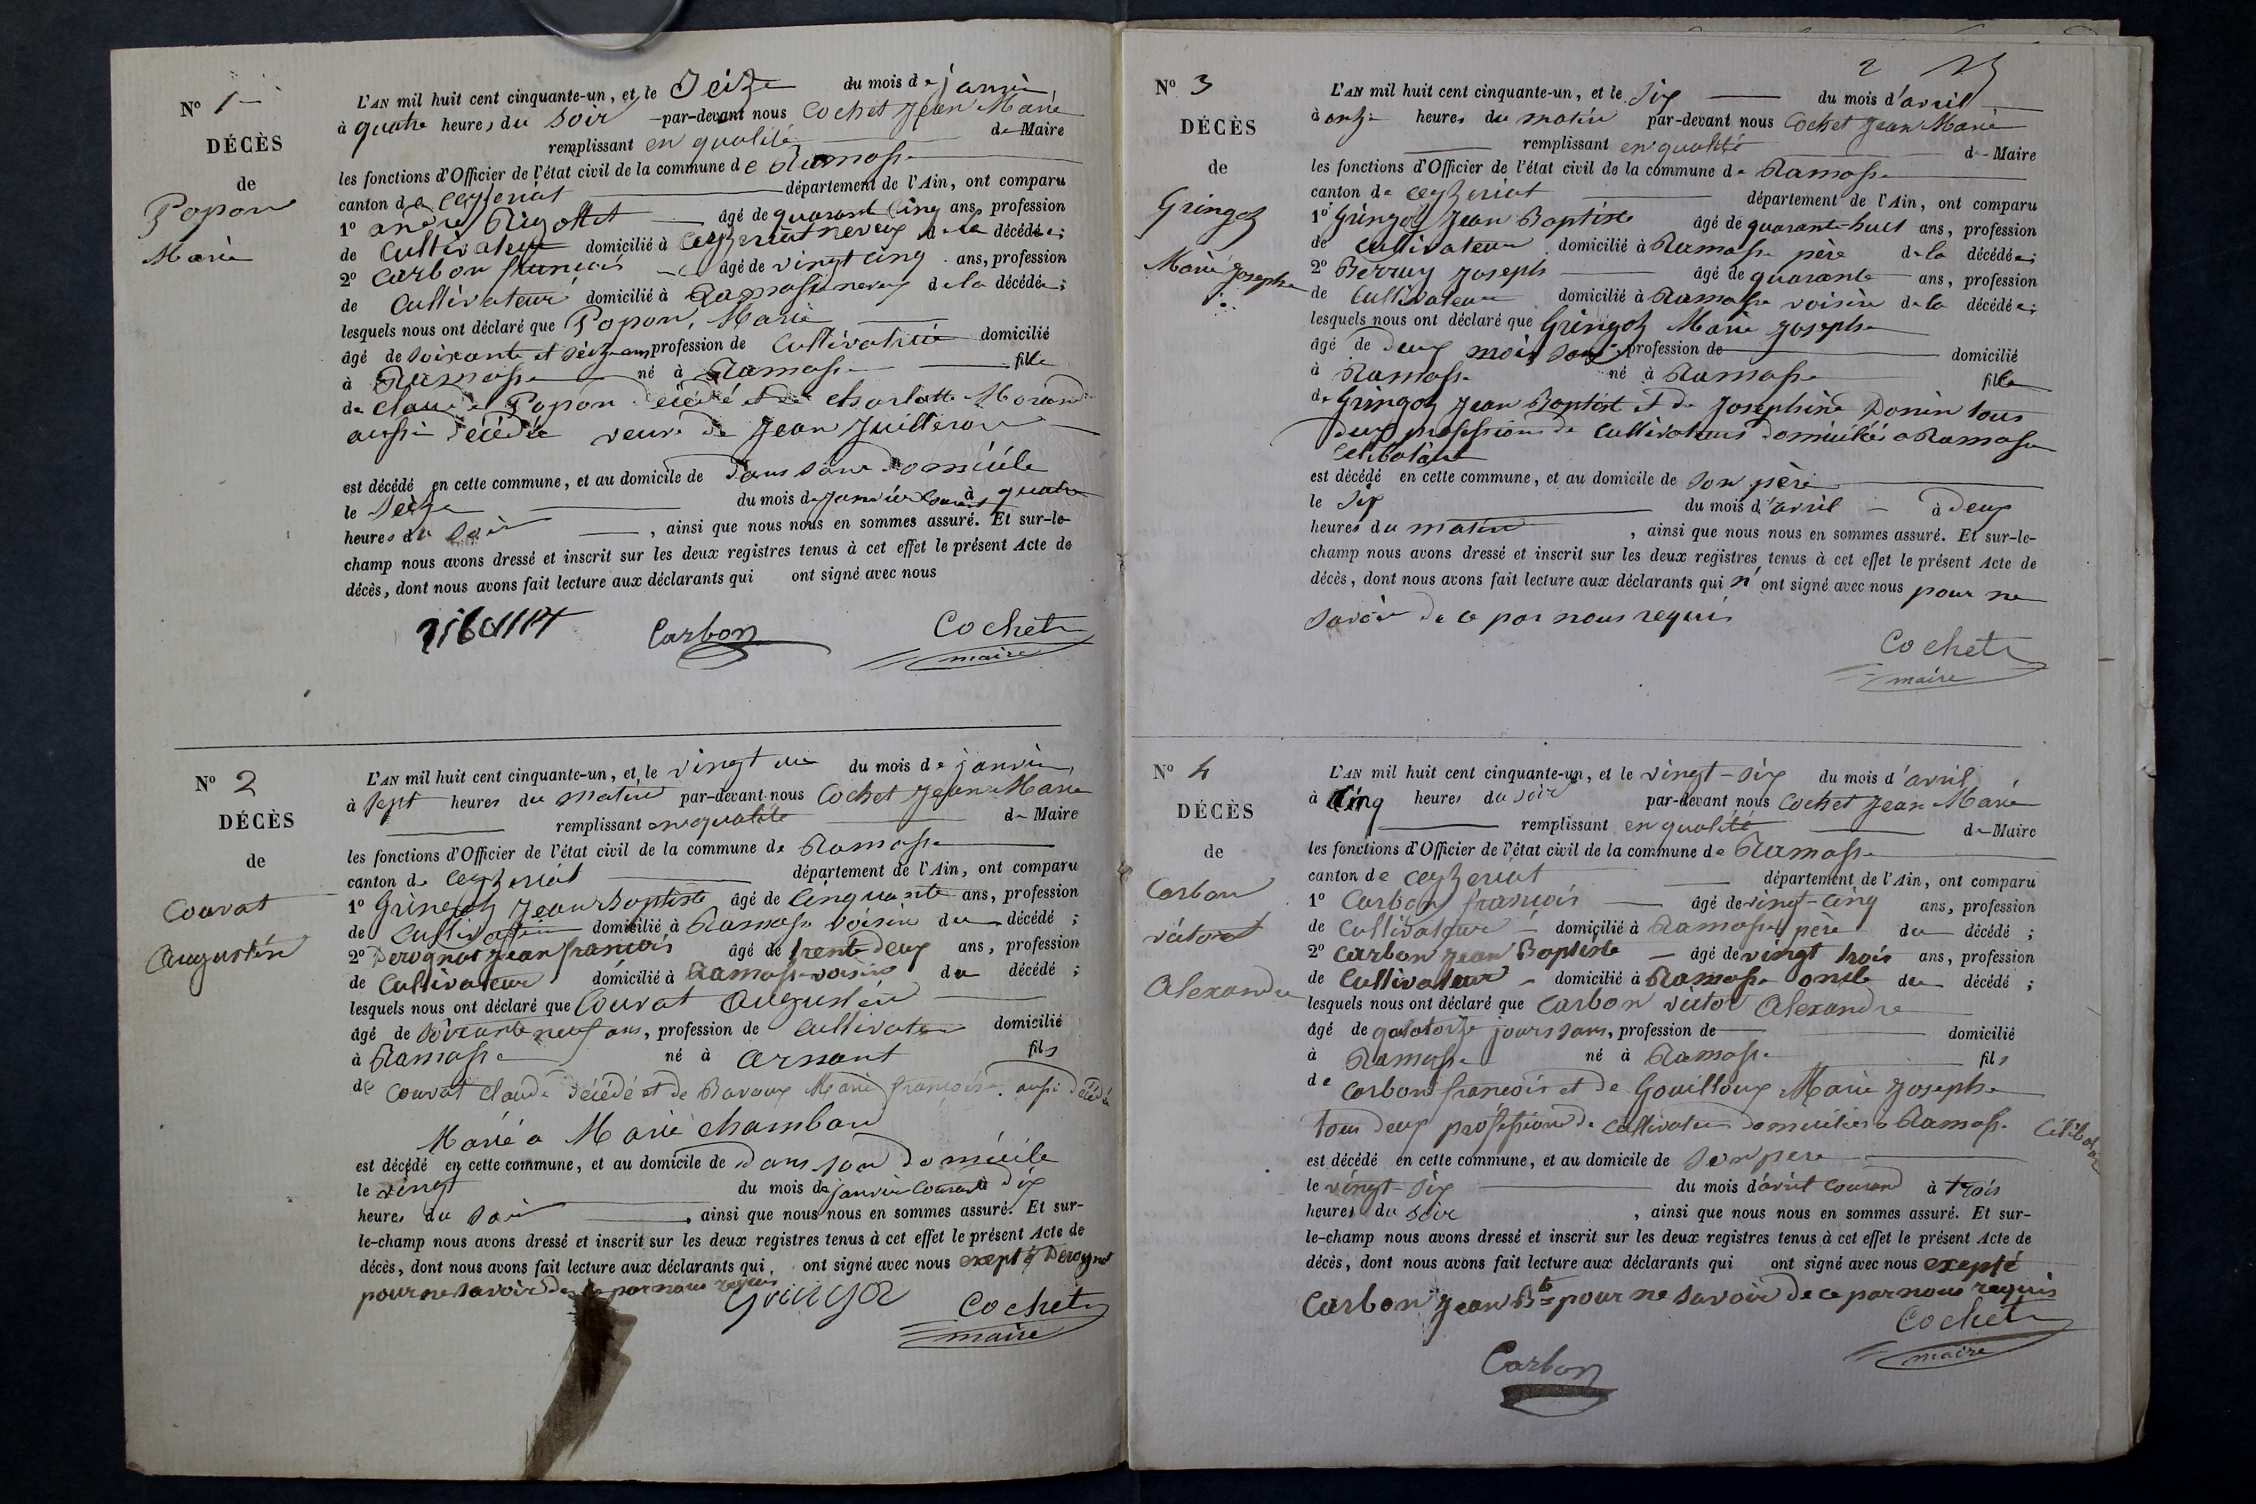 N° 1
DÉCÈS
de
Popon
Marie
L'AN mil huit cent cinquante-un, et le seize du mois de janvier
à quatre heures du soir par-devant nous Cochet Jean Marie
remplissant en qualité de Maire
les fonctions d'Officier de l'état civil de la commune de Ramasse
canton de Ceyzeriat département de l'Ain, ont comparu
1° andré Rigottet âgé de quarant cinq ans, profession
de Cultivateur domicilié à Ceyzeriat neveux de la décédée;
2° Carbon francois âgé de vingt cinq ans, profession
de Cultivateur domicilié à Ramasse neveux de la décédée;
lesquels nous ont déclaré que Popon, Marie
âgé de soixante et seize ans profession de Cultivatrice domicilié
à Ramasse né à Ramasse fille
de Claude Popon décédé et de Charlotte Morand
aussi décédée veuve de Jean Juilleron
est décédé en cette commune, et au domicile de dans son domicile
le seize du mois de janvier courant à quatre
heures du soir, ainsi que nous nous en sommes assuré. Et sur-le-
champ nous avons dressé et inscrit sur les deux registres tenus à cet effet le présent Acte de
décès, dont nous avons fait lecture aux déclarants qui ont signé avec nous
Carbon Cochet
maire
N° 2
DÉCÈS
de
Couvat
Augustin
L'AN mil huit cent cinquante-un, et le vingt un du mois de janvier
à sept heures du matin par-devant nous Cochet Jean Marie
remplissant en qualité de Maire
les fonctions d'Officier de l'état civil de la commune de Ramasse
canton de Ceyzeriat département de l'Ain, ont comparu
1° Gringoz Jean Baptiste âgé de Cinquante ans, profession
de Cultivateur domicilié à Ramasse voisin du décédé;
2° Perognat Jean francois âgé de trente deux ans, profession
de Cultivateur domicilié à Ramasse voisin du décédé;
lesquels nous ont déclaré que Couvat Augustin
âgé de soixante neuf ans, profession de Cultivateur domicilié
à Ramasse né à arnant fils
de Couvat Claude décédé et de Bavoux Marie françoise aussi décédée
Marié a Marie chambau
est décédé en cette commune, et au domicile de dans son domicile
le vingt du mois de janvier Courant à dix
heures du soir, ainsi que nous nous en sommes assuré. Et sur-
le-champ nous avons dressé et inscrit sur les deux registres tenus à cet effet le présent Acte de
décès, dont nous avons fait lecture aux déclarants qui ont signé avec nous exepté Perognat
pour ne savoir de ce par nous requis
Gringoz Cochet
maire
2
N° 3
DÉCÈS
de
Gringoz
Marie Josephe
L'AN mil huit cent cinquante-un, et le six du mois d'avril
à onze heures du matin par-devant nous Cochet Jean Marie
remplissant en qualité de Maire
les fonctions d'Officier de l'état civil de la commune de Ramasse
canton de Ceyzeriat département de l'Ain, ont comparu
1° Gringoz Jean Baptiste âgé de quarante-huit ans, profession
de cultivateur domicilié à Ramasse père de la décédée;
2° Berruy Joseph âgé de quarante ans, profession
de Cultivateur domicilié à Ramasse voisin de la décédée;
lesquels nous ont déclaré que Gringoz Marie Josephe
âgé de deux mois sans profession de domicilié
à Ramasse né à Ramasse fille
de Gringoz Jean Baptiste et de Josephine Donin tous
deux professions de Cultivateurs domiciliés a Ramasse
Celibataire
est décédé en cette commune, et au domicile de son père
le six du mois d'avril à deux
heures du matin, ainsi que nous nous en sommes assuré. Et sur-le-
champ nous avons dressé et inscrit sur les deux registres tenus à cet effet le présent Acte de
décès, dont nous avons fait lecture aux déclarants qui n'ont signé avec nous pour ne
savoir de ce par nous requis
Cochet
maire
N° 4
DÉCÈS
de
Carbon
victor
Alexandre
L'AN mil huit cent cinquante-un, et le vingt-six du mois d'avril
à Cinq heures du soir par-devant nous Cochet Jean Marie
remplissant en qualité de Maire
les fonctions d'Officier de l'état civil de la commune de Ramasse
canton de Ceyzeriat département de l'Ain, ont comparu
1° Carbon francois âgé de vingt-cinq ans, profession
de Cultivateur domicilié à Ramasse père du décédé;
2° Carbon Jean Baptiste âgé de vingt trois ans, profession
de Cultivateur domicilié à Ramasse oncle du décédé;
lesquels nous ont déclaré que Carbon victor Alexandre
âgé de quatorze jours sans, profession de domicilié
à Ramasse né à Ramasse fils
de Carbon francois et de Gouilloux Marie Josephe
tous deux profession de Cultivateur domiciliés a Ramasse Célibataire
est décédé en cette commune, et au domicile de son pere
le vingt-six du mois d'avril courant à trois
heures du soir, ainsi que nous nous en sommes assuré. Et sur-
le-champ nous avons dressé et inscrit sur les deux registres tenus à cet effet le présent Acte de
décès, dont nous avons fait lecture aux déclarants qui ont signé avec nous exepté
Carbon Jean Bte pour ne savoir de ce par nous requis
Cochet
maire
Carbon